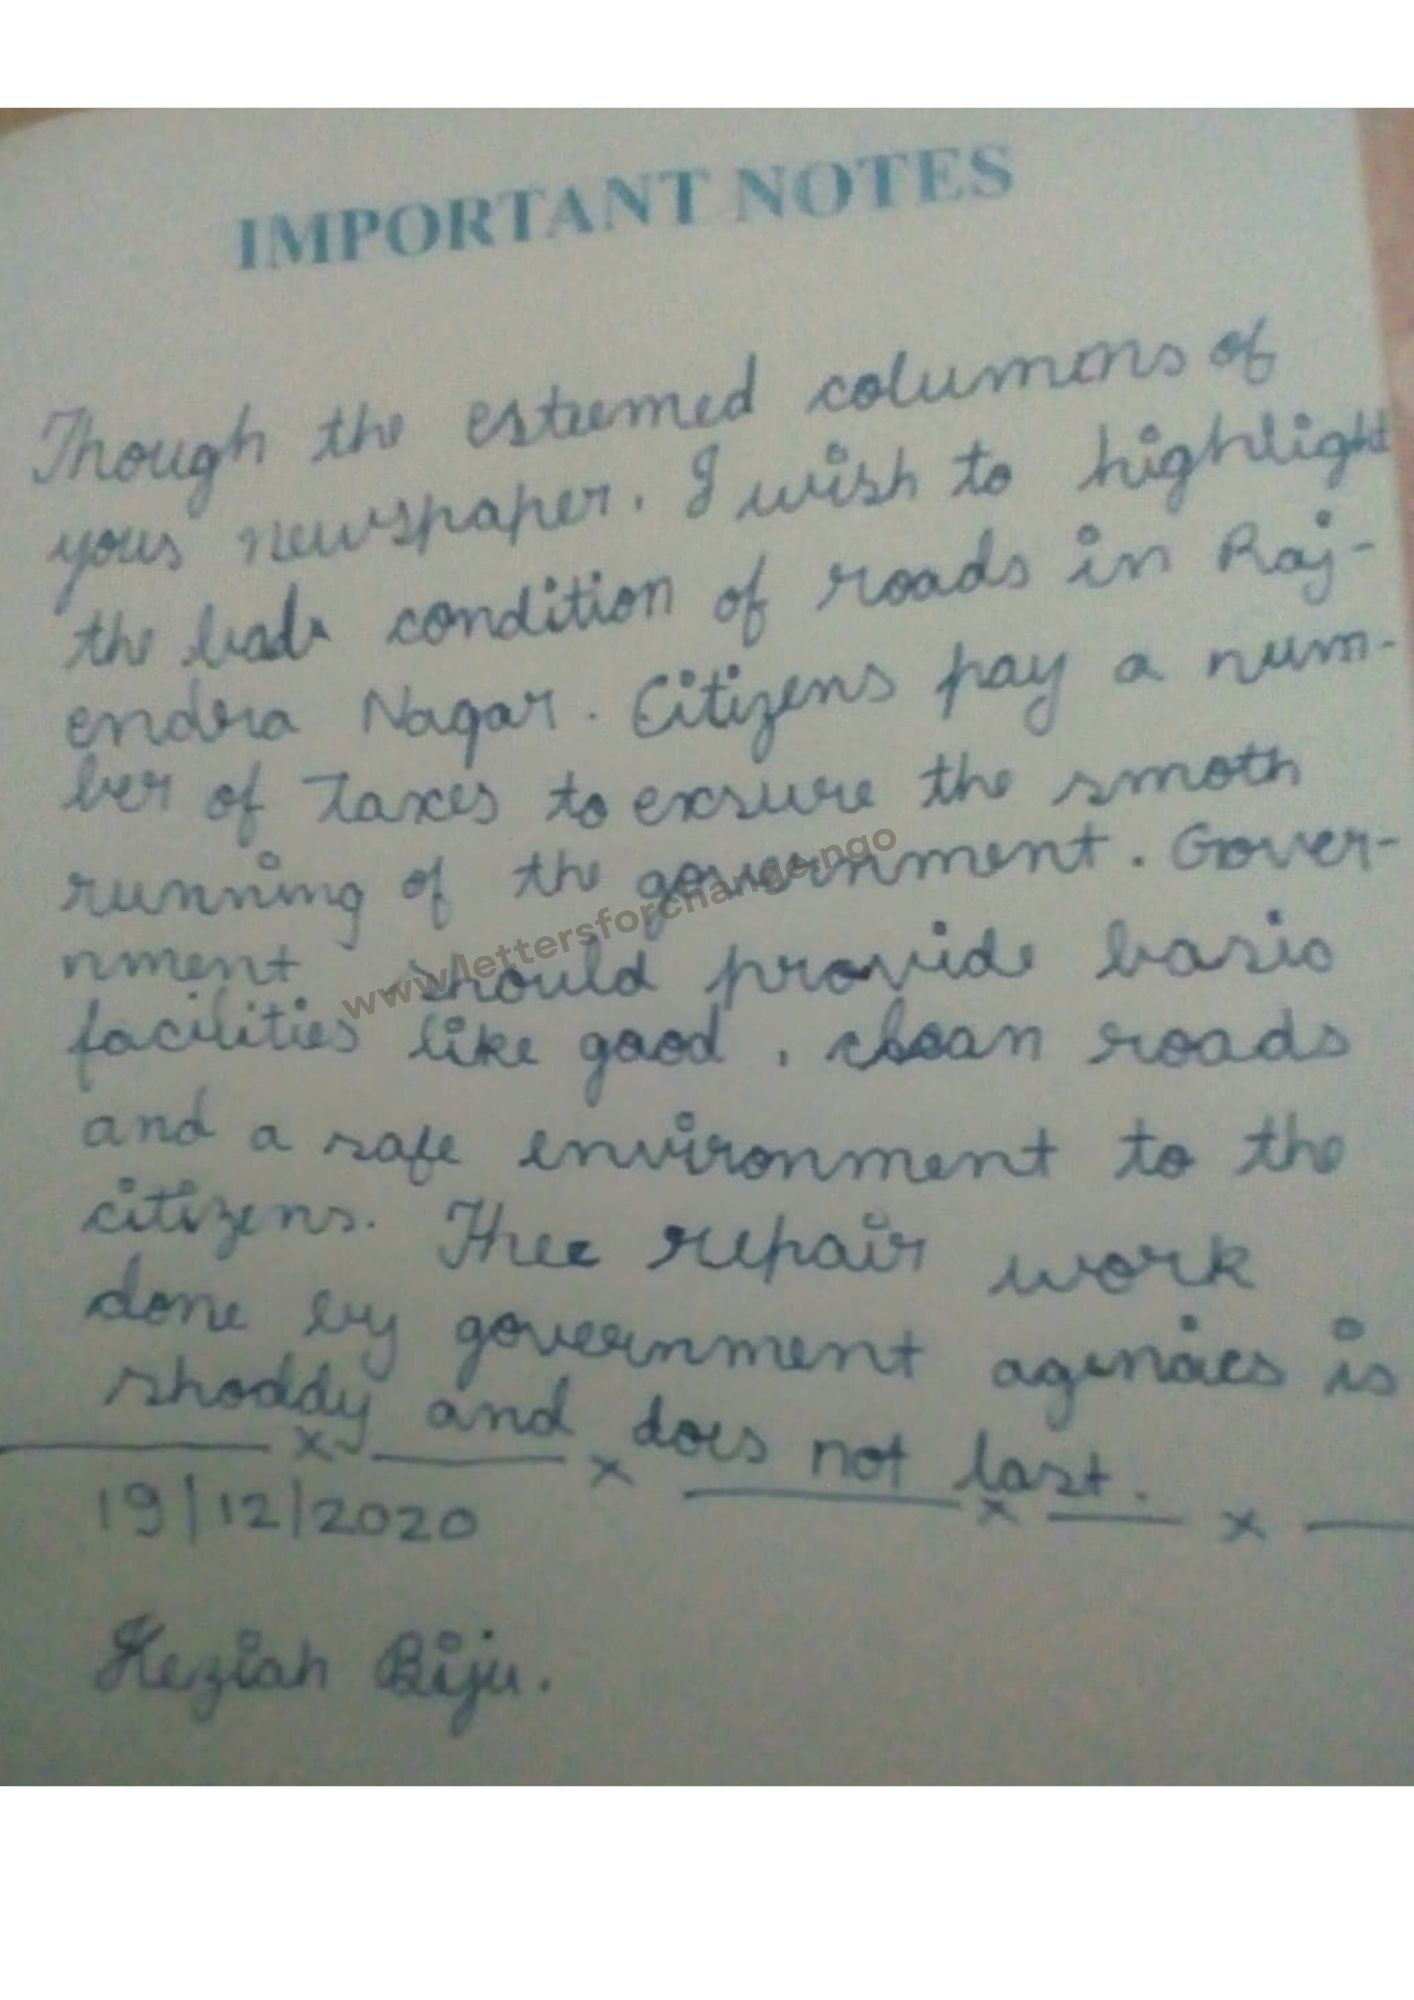 IMPORTANT NOTES
Though the esteemed columns of
your newspaper. I wish to highlight
the bad condition of roads in Raj-
endra Nagar. Citizens pay a num-
ber of Taxes to exsure the smoth
running of the government. Gover-
nment should provide basic
facilities like good, clean roads
and a safe environment to the
citizens. Thee repair work
done by government agencies is
shoddy and does not last.
19/12/2020
Keziah Biju.
www.lettersforchange.ngo